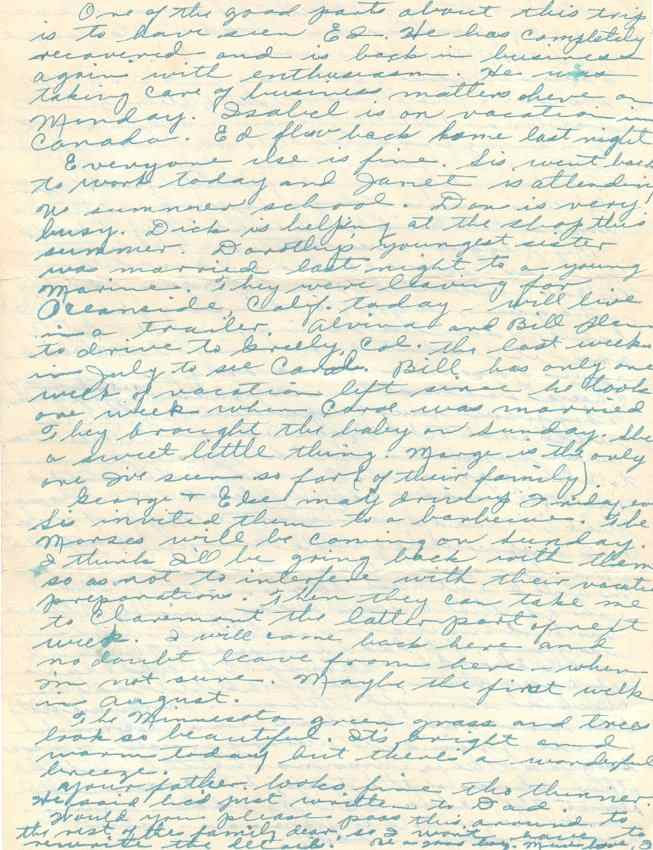 One of the good parts about this trip
is to have seen Ed. He has completely
recovered and is back in business
again with enthusiasm. He was
taking care of business matters here on
Monday. Isabel is on vacation in
Canada. Ed flew back home last night
Everyone else is fine. Sis went back
to work today and Janet is attending
summer school. Don is very
busy. Dick is helping at the shop this
summer. Dorothy's youngest sister
was married last night to a young
Marine. They were leaving for
Oceanside, Calif. today - will live
in a trailer. Alvina and Bill plan
to drive to Greelly, Col. the last week
in July to see Carol. Bill has only one
week of vacation left since he took
one week when Carol was married
They brought the baby on Sunday. She
a sweet little thing. Marge is the only
one I've seen so far (of their family)
George + Else may driving Friday
Sis invited them to a barbecue. The
Morses will be coming on Sunday.
I think I'll be going back with them
so as not to interfere with their vacation
preparations. Then they can take me
to Claremont the latter part of next
week. I will come back here and
no doubt leave from here - when
I'm not sure. Maybe the first week
in August.
The Minnesota green grass and trees
look so beautiful. It's bright and
warm today but there's a wonderful
breeze.
Your father looks fine tho thinner.
He said he'd just written to Dad
Would you please pass this around to
the rest of the family dear, so I won't have to
rewrite the details. Be a good boy. Much love,